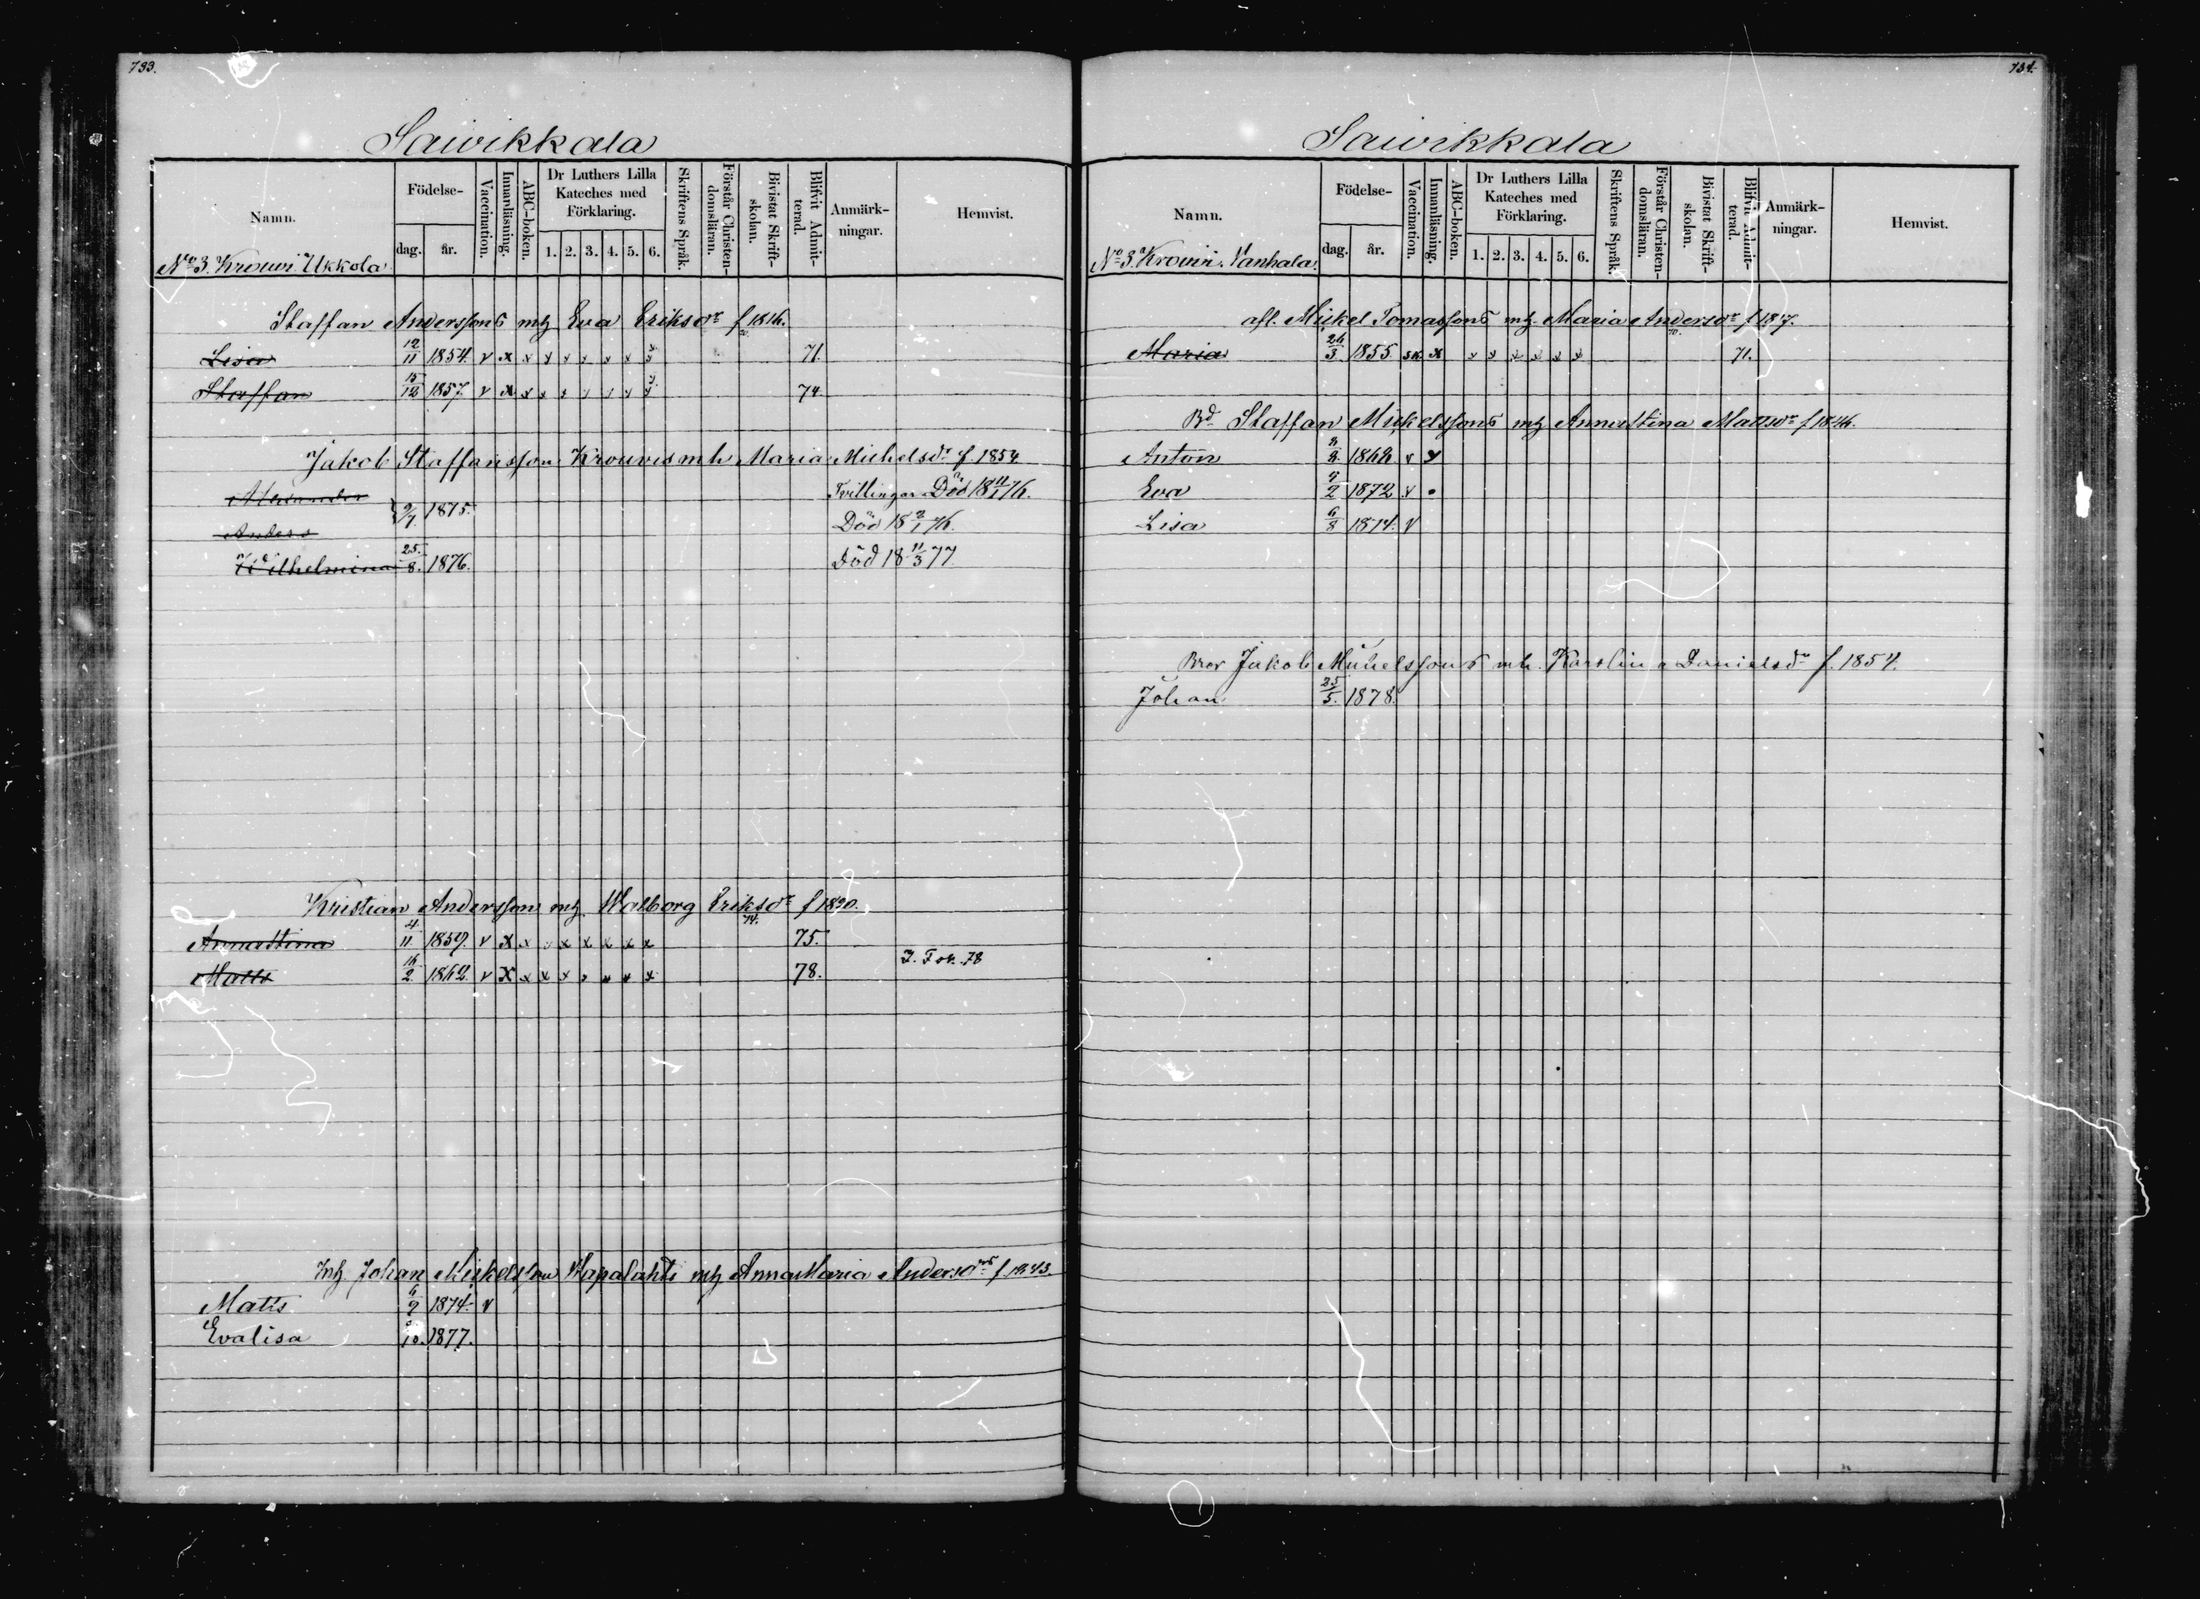 733.
Saivikkala
Namn.
Födelse-
dag.
år.
Vaccination.
Innanläsning.
ABC-boken.
Dr Luthers Lilla
Kateches med
Förklaring.
1. 2. 3. 4. 5. 6.
Skriftens Språk.
Förstår Christen-
domsläran.
Bivistat Skrift-
skolan.
Blifvit Admit-
terad.
Anmärk-
ningar.
Hemvist.
No 3. Krouvi Ukkola
Staffan Anderssons mh Eva Eriksdr f 1816.
Lisa 12/11 1854. v x x x x x x x 71.
Staffan 15/12 1857. v x x x x 74.
Jakob Staffansson Krouvis mh Maria Michelsdr f. 1854
Alexander Tvillingar Död 18 11/1 76.
9/7 1875.
Anders Död 18 2/1 76.
Wilhelmina 25/8. 1876. Död 18 11/3 77
Kristian Andersson mh Walborg Eriksdr f 1820.
74.
Annastina 4/11 1859. v x x x x x x x 75.
Matts 16/2. 1862. v x x x x x x x 78. J. Fok. 78
Johan Mickelsson Hapalahti mh AnnaMaria Andersdrs f. 1843.
Matts 6/9 1874. v
Evalisa /10. 1877.
734.
Saivikkala
Namn.
Födelse-
dag.
år.
Vaccination.
Innanläsning.
ABC-boken.
Dr Luthers Lilla
Kateches med
Förklaring.
1. 2. 3. 4. 5. 6.
Skriftens Språk.
Förstår Christen-
domsläran.
Bivistat Skrift-
skolan.
Blifvit Admit-
terad.
Anmärk-
ningar.
Hemvist.
No 3. Krouvi. Vanhala.
afl. Mickel Tomassons mh. Maria Andersdr f 1817.
70.
Maria 26/3. 1855. sk. x x x x x x x 71.
Bd Staffan Mickelssons mh Annastina Mattsdr f 1846.
Anton 1868 v v
Eva 2 1872 v .
Lisa 6/8 1874. v
Bror Jakob Michelssons mh. Karolina Danielsdr f. 1854.
Johan 25/5. 1878.